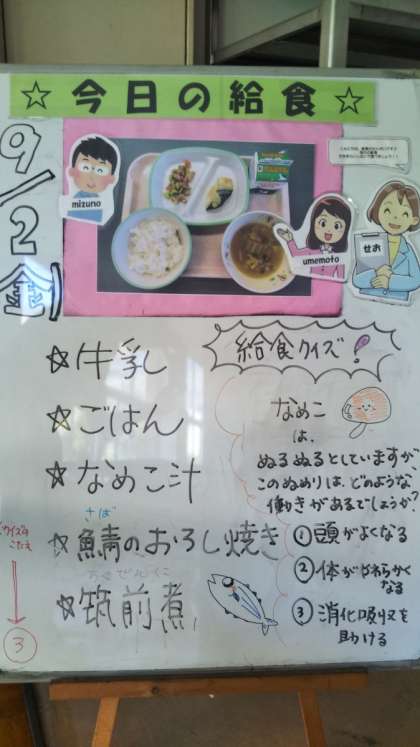 ☆今日の給食☆
9/2
金
mizuno
umemoto
せお
☆牛乳
☆ごはん
☆なめこ汁
さば
☆鯖のおろし焼き
ちくぜんに
☆筑前煮
給食クイズ!
なめこ
は、
ぬるぬるとしていますが
このぬめりは、どのような
働きがあるでしょうか?
①頭がよくなる
②体がやわらかく
なる
③消化吸収を
助ける
クイズの
こたえ
③